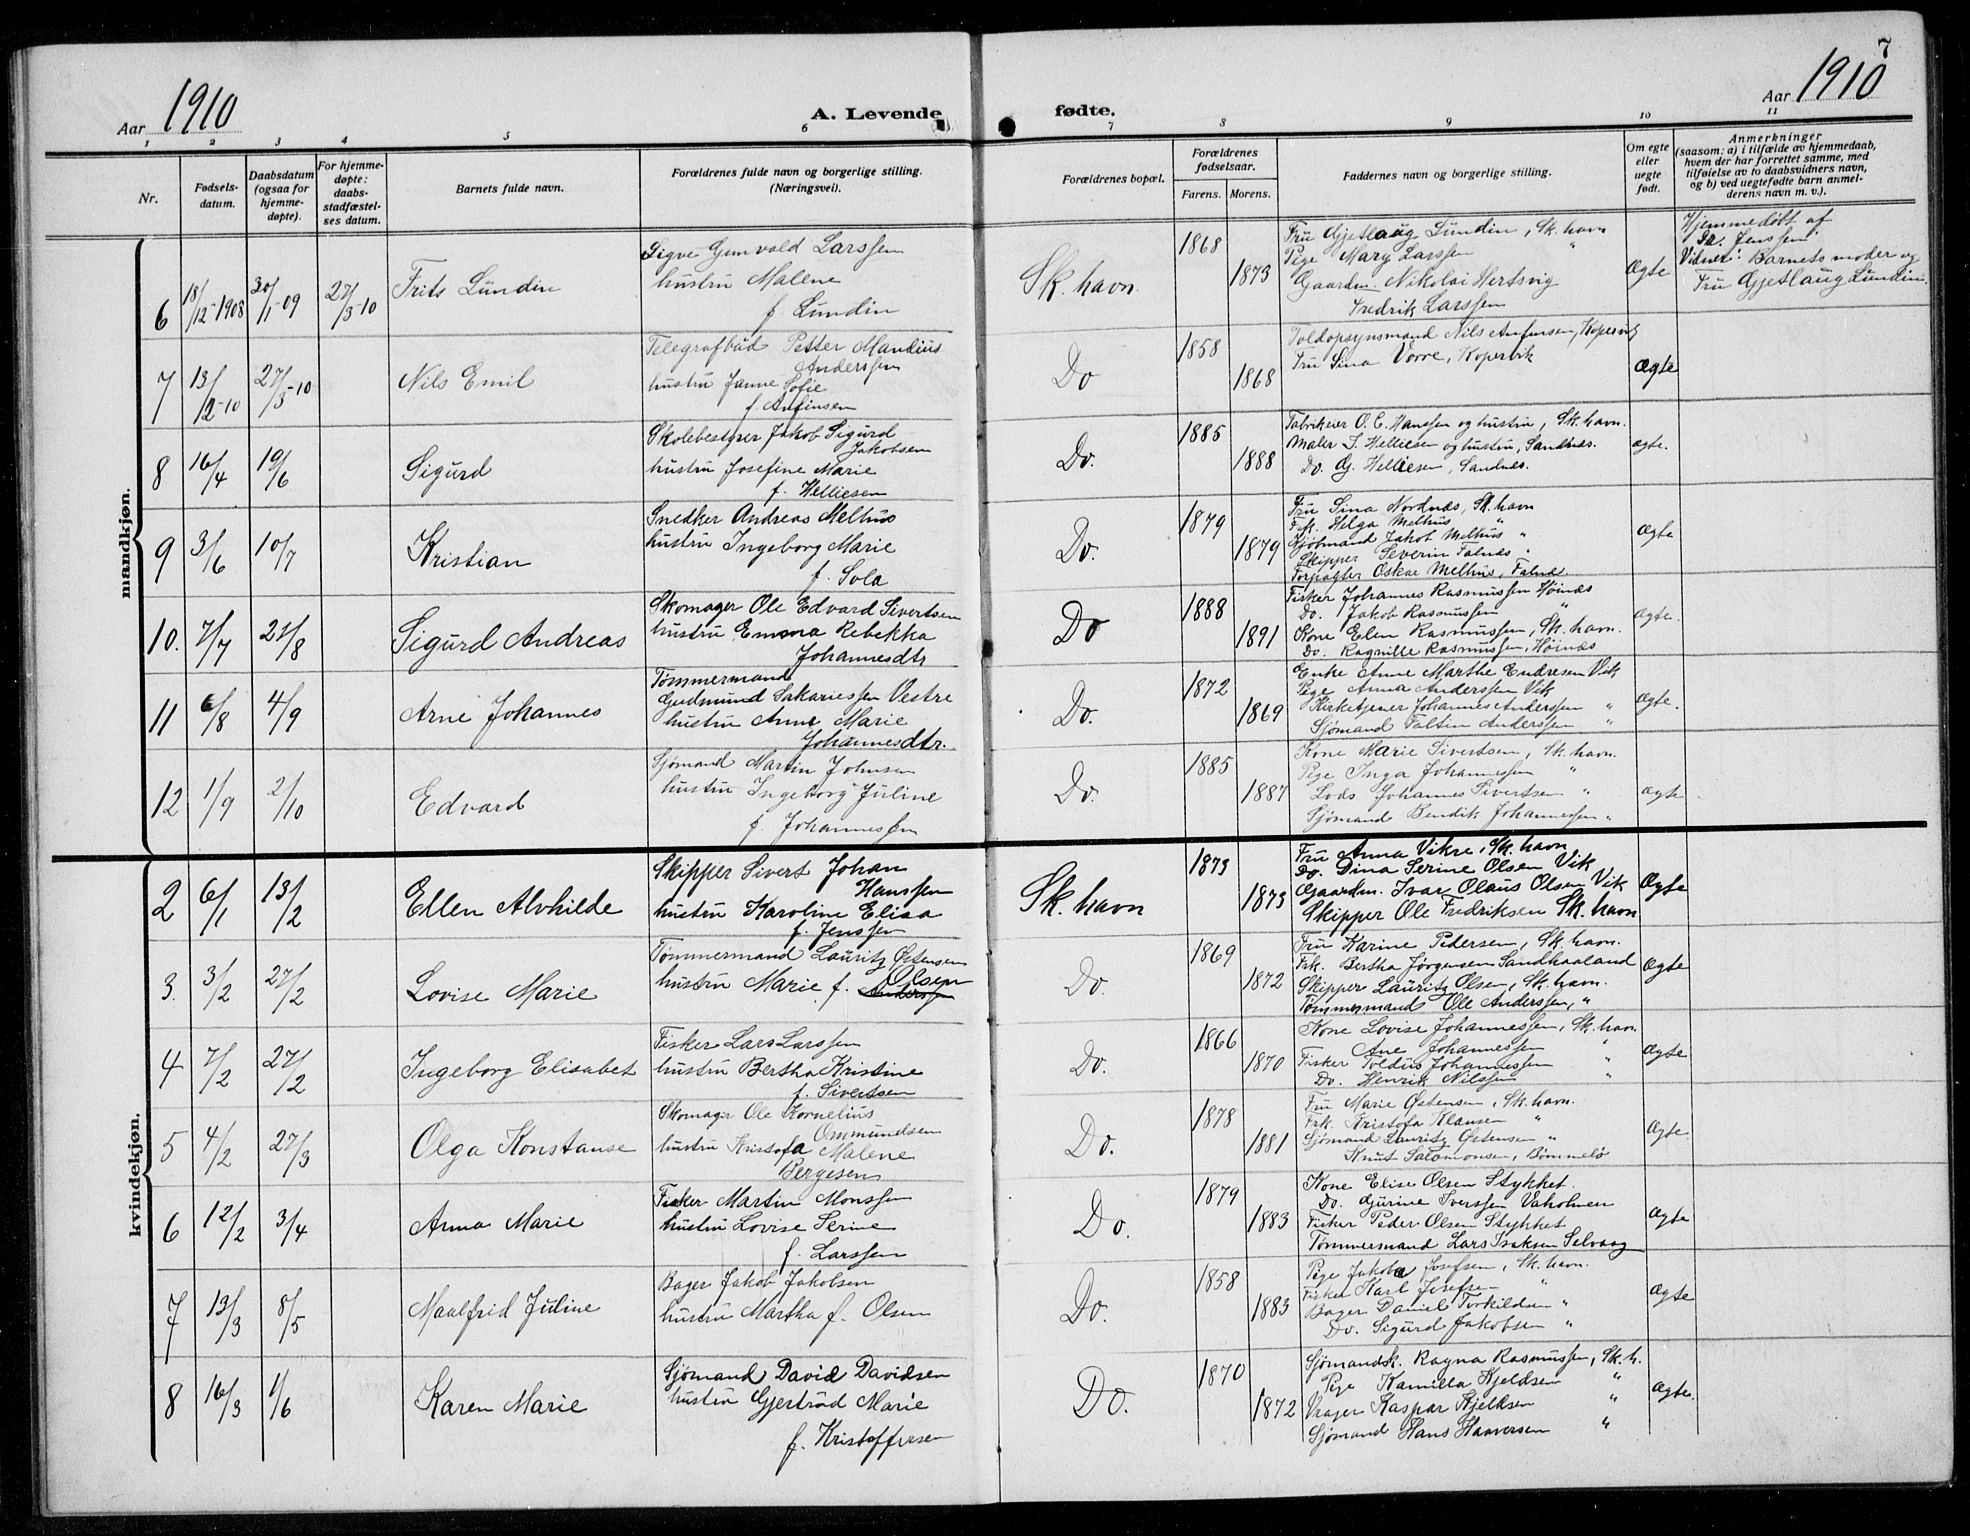 7
Aar 1910
A. Levende fødte.
Aar 1910
1 2 3 4 5 6 7 8 9 10 11
Nr.
Fødsels-
datum.
Daabsdatum
(ogsaa for
hjemme-
døpte).
For hjemme-
døpte:
daabs-
stadfæstel-
ses datum.
Barnets fulde navn.
Forældrenes fulde navn og borgerlige stilling.
(Næringsvei).
Forældrenes bopæl.
Forældrenes
fødselsaar.
Farens. Morens.
Faddernes navn og borgerlige stilling.
Om egte
eller
uegte
født.
Anmerkninger
(saasom: a) i tilfælde av hjemmedaab,
hvem der har forrettet samme, med
tilføielse av to daabsvidners navn,
og b) ved uegtefødte barn anmel-
derens navn m. v.).
mandkjøn.
6 18/12-1908 30/1-09 27/3-10 Frits Lundin
Sigve Gunvald Larssen
hustru Malene
f. Lundin
Sk. havn 1868 1873
Fru Gjetlaug Lundin, Sk. havn
Pige Mary Larssen "
Gaardm. Nikolai Hertsvig
Fredrik Larssen
Ægte
Hjemmedøbt af
Dr. Jenssen.
Vidner: Barnets moder og
Fru Gjetlaug Lundin
7 13/12-10 27/3-10 Nils Emil
Telegrafbud Petter Mandius
Anderssen
hustru Janne Sofie
f. Anfinsen
Do 1858 1868
Toldopsynsmand Nils Anfinsen, Kopervig
Fru Sina Vorre, Kopervik
Ægte
8 16/4 19/6 Sigurd
Skolebestyrer Jakob Sigurd
Jakobsen
hustru Josefine Marie
f. Helliesen
Do. 1885 1888
Fabrikeier O. E. Hanssen og hustru, Sk. havn.
Maler S. Helliesen og hustru, Sandnes.
Do. G. Helliesen, Sandnes.
Ægte.
9 3/6 10/7 Kristian
Snedker Andreas Melhus
hustru Ingeborg Marie
f. Sola
Do. 1879 1879
Fru Sina Nordnæs, Sk. havn
Frk. Helga Melhus "
Sjømand Jakob Melhus "
Skipper Severin Falnæs "
Forpagter Oskar Melhus, Falnæs
Ægte
10. 7/7 21/8 Sigurd Andreas
Skomager Ole Edvard Sivertsen
hustru Emma Rebekka
Johannesdtr
Do 1888 1891
Fisker Johannes Rasmussen Høinæs
Do. Jakob Rasmussen "
Kone Elen Rasmussen, Sk. havn.
Do. Ragnille Rasmussen, Høinæs
Ægte.
11 6/8 4/9 Arne Johannes
Tømmermand
Gudmund Sakariessen Vestre
hustru Anne Marie
Johannesdtr.
Do. 1872 1869
Enke Anne Marthe Endresen Vik
Pige Anna Anderssen Vik
Kirketjener Johannes Anderssen "
Sjømand Faltin Anderssen "
Ægte.
12 1/9 2/10 Edvard
Sjømand Martin Johnsen
hustru Ingeborg Juline
f. Johannessen
Do. 1885 1887
Kone Marie Sivertsen, Sk. havn.
Pige Inga Johannessen "
Lods Johannes Sivertsen "
Sjømand Bendik Johannessen "
Ægte
kvindekjøn.
2 6/1 13/2 Ellen Alvhilde
Skipper Sivert Johan
Hanssen
hustru Karoline Elisa
f. Jenssen
Sk. havn 1873 1873
Fru Anna Vikre, Sk. havn
Do. Dina Serine Olsen Vik
Gaardm. Ivar Olaus Olsen Vik
Skipper Ole Fredriksen Sk. havn
Ægte
3. 3/2 27/2 Lovise Marie
Tømmermand Lauritz Østensen
hustru Marie f. Olsen
Anderssen
Do. 1869 1872
Fru Karine Pedersen, Sk. havn.
Frk. Bertha Jørgensen Sandhaaland
Skipper Lauritz Olsen, Sk. havn.
Tømmermand Ole Anderssen, "
Ægte
4 7/2 27/2 Ingeborg Elisabet
Fisker Lars Larssen
hustru Bertha Kristine
f. Sivertsen
Do. 1866 1870
Kone Lovise Johannessen, Sk. havn
Ane Johannessen "
Fisker Toldius Johannessen "
Do. Henrik Nilssen "
Ægte
5 4/2 27/3 Olga Konstanse
Skomager Ole Kornelius
Ommundsen
hustru Kristofa Malene
Børgesen
Do. 1878 1881
Fru Marie Østensen, Sk. havn.
Frk. Kristofa Klausen "
Sjømand Lauritz Østensen "
Knut Salomonsen, Bømmelø
Ægte
6 12/2 3/4 Anna Marie
Fisker Martin Monssen
hustru Lovise Serine
f. Larssen
Do. 1879 1883
Kone Elise Olsen Stykket.
Do. Gurine Iverssen Vaholmen
Fisker Peder Olsen Stykket
Tømmermand Lars Isaksen Selvaag
Ægte
7 13/3 8/5 Maalfrid Juline
Bager Jakob Jakobsen
hustru Martha f. Olsen
Do. 1858 1883
Pige Jakoba Josefsen, Sk. havn.
Fisker Karl Josefsen "
Bager Daniel Torkildsen "
Do. Sigurd Jakobsen "
Ægte
8 16/3 1/6 Karen Marie
Sjømand David Davidsen
hustru Gjertrud Marie
f. Kristoffersen
Do. 1870 1872
Sjømandsk. Ragna Rasmussen, Sk. h.
Pige Kamilla Kjeldsen "
Vrager Kaspar Kjeldsen "
Sjømand Hans Haaversen "
Ægte.